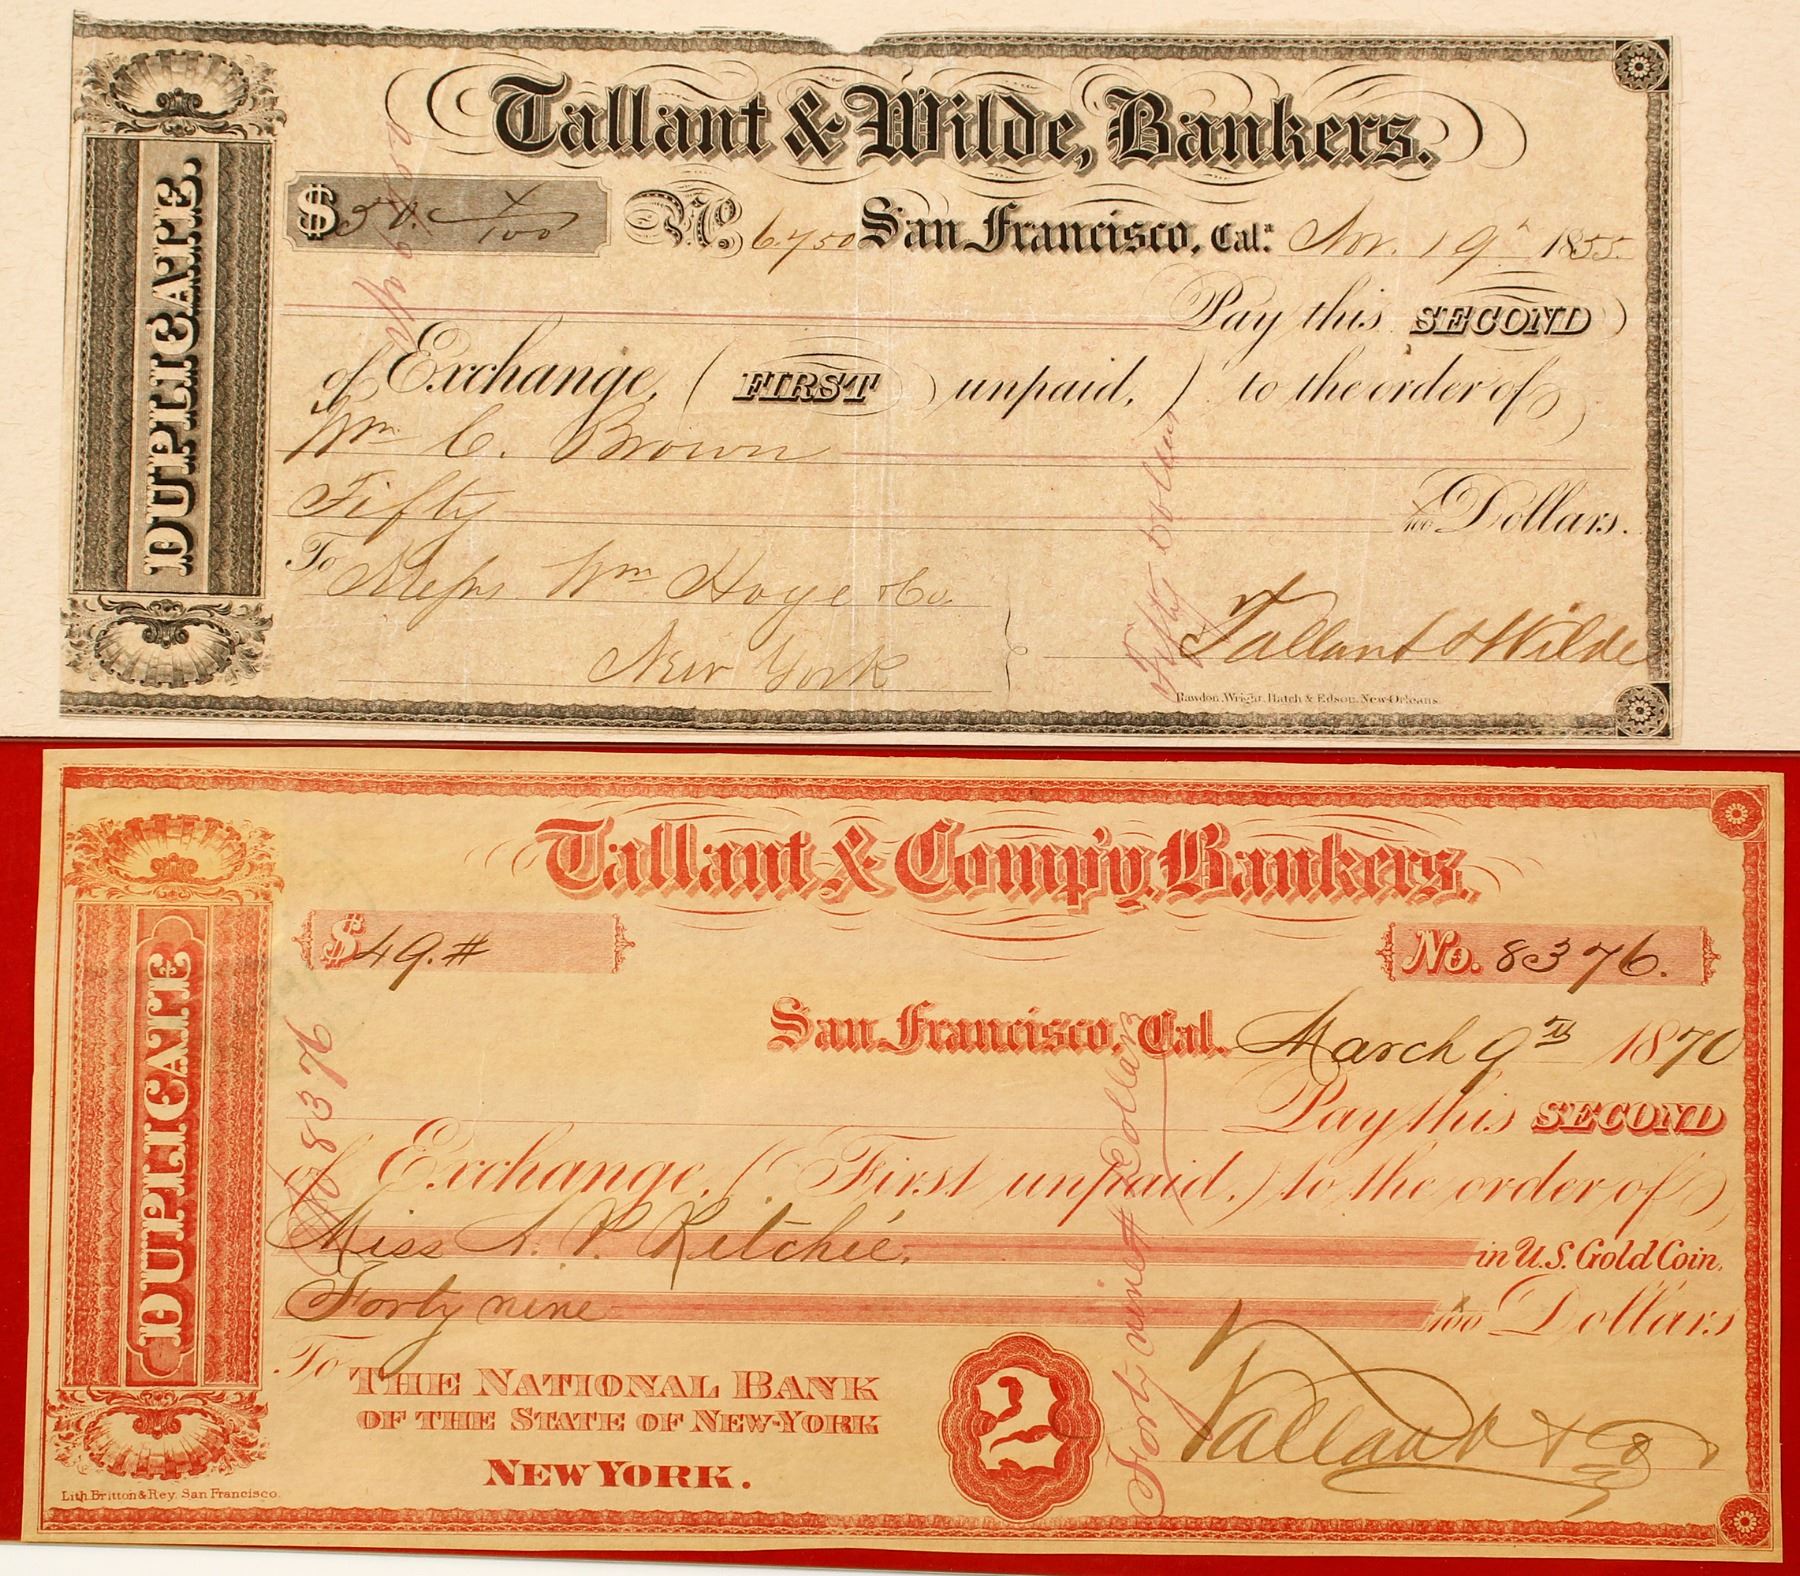 Tallant & Wilde, Bankers.
DUPLICATE.
$ 50. x/100 No. 6.750 San Francisco, Cal.ª Nov. 19th 1855.
Pay this SECOND
of Exchange, (FIRST unpaid,) to the order of
Wm C. Brown
Fifty x/100 Dollars.
To Messrs Wm Hoge & Co.
New York
Tallant & Wilde
Rawdon, Wright, Hatch & Edson, New-Orleans.
Fifty Dollars
Tallant & Comp'y, Bankers.
DUPLICATE
$ 49.# No. 8376.
San Francisco, Cal. March 9th 1870
Pay this SECOND
of Exchange, (First unpaid,) to the order of
Miss A. P. Ritchie, in U.S. Gold Coin,
Forty nine x/100 Dollars
To THE NATIONAL BANK
OF THE STATE OF NEW-YORK
NEW YORK.
2
Tallant & Co
No 8376
Forty nine # Dollars
Lith. Britton & Rey. San Francisco.